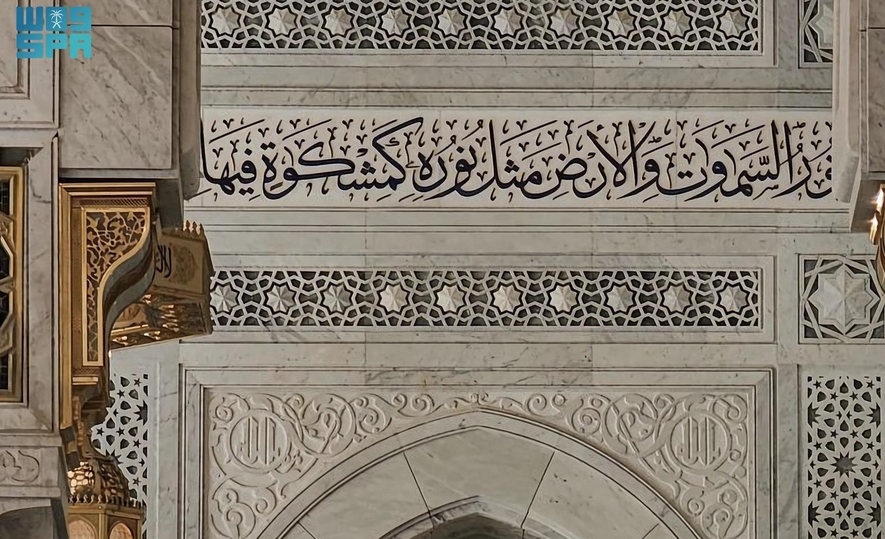 واس
SPA
نُورُ السَّمَٰوَٰتِ وَالْأَرْضِ مَثَلُ نُورِهِ كَمِشْكَوٰةٍ فِيهَا
الله
الله